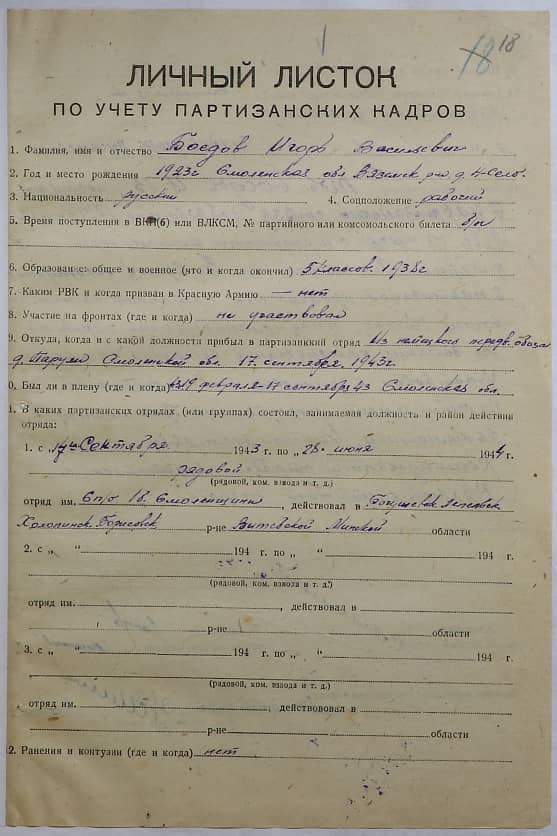 18 18
ЛИЧНЫЙ ЛИСТОК
ПО УЧЕТУ ПАРТИЗАНСКИХ КАДРОВ
1. Фамилия, имя и отчество Боедов Игорь Васильевич
2. Год и место рождения 1923г Смоленская обл Вяземск р-н д.
3. Национальность русский 4. Соцположение рабочий
5. Время поступления в ВКП(б) или ВЛКСМ, № партийного или комсомольского билета б/п
6. Образование: общее и военное (что и когда окончил) 5 классов. 1938г
7. Каким РВК и когда призван в Красную Армию — нет
8. Участие на фронтах (где и когда) не участвовал
9. Откуда, когда и с какой должности прибыл в партизанский отряд Из немецкого обоза
д. Смоленской обл. 17. сентября. 1943г.
0. Был ли в плену (где и когда) 19 февраля-17 сентября 43 Смоленская обл.
1. В каких партизанских отрядах (или группах) состоял, занимаемая должность и район действия
отряда:
1. с „17" Сентября 1943 г. по „28" июня 1944 г.
рядовой
(рядовой, ком. взвода и т. д.)
отряд им. 6 п/о Смоленщины, действовал в
Холопинск. Борисовск р-не Витебской Минской области
2. с „ “ 194 г. по „ “ 194 г.
(рядовой, ком. взвода и т. д.)
отряд им. , действовал в
р-не области
3. с „ “ 194 г. по „ “ 194 г.
(рядовой, ком. взвода и т. д.)
отряд им. , действовал в
р-не области
2. Ранения и контузии (где и когда) нет